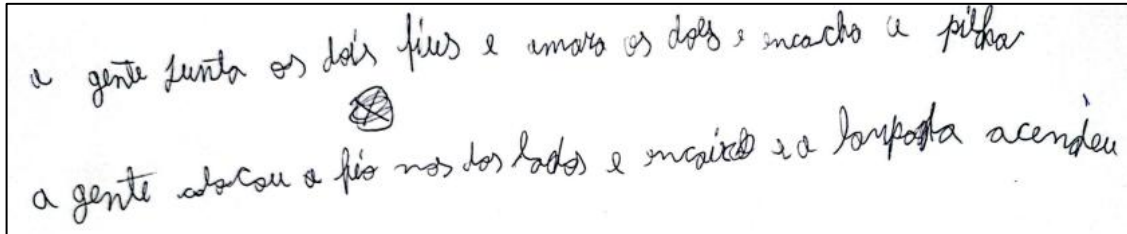 a gente junta os dois fius e amara os dois e encacha a pilha
a gente colocou o fio nos dos lados e encaixo e a lampada acendeu